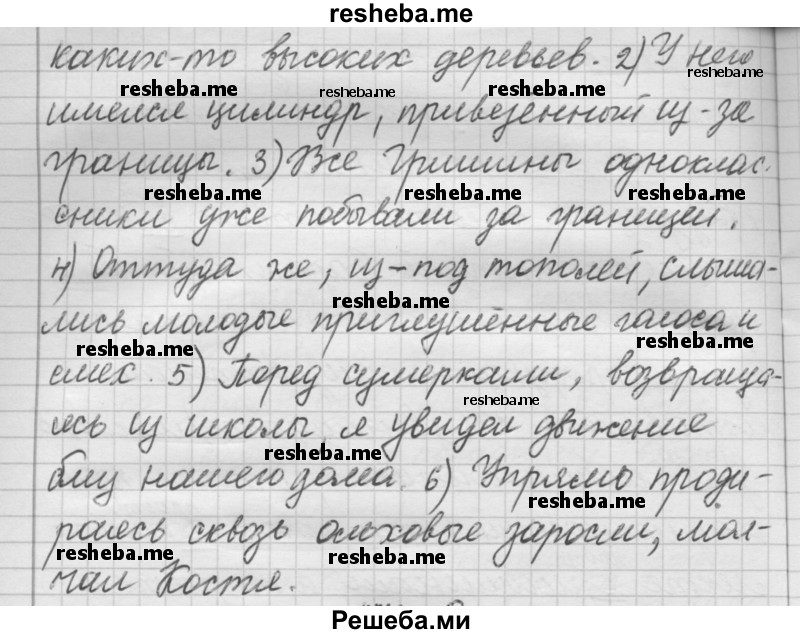 resheba.me
каких-то высоких деревьев. 2) У него
resheba.me resheba.me resheba.me
имелся цилиндр, привезенный из-за
границы. 3) Все Гришины однoклас-
resheba.me resheba.me resheba.me
сники уже побывали за границей.
4) Оттуда же, из-под тополей, слыша-
resheba.me
лись молодые приглушённые голоса и
resheba.me resheba.me
смех. 5) Перед сумерками, возвраща-
resheba.me
ясь из школы, я увидел движение
resheba.me
близ нашего дома. 6) Упрямо проди-
resheba.me
раясь сквозь ольховые заросли, мол-
resheba.me resheba.me
чал Костя.
Решеба.ми